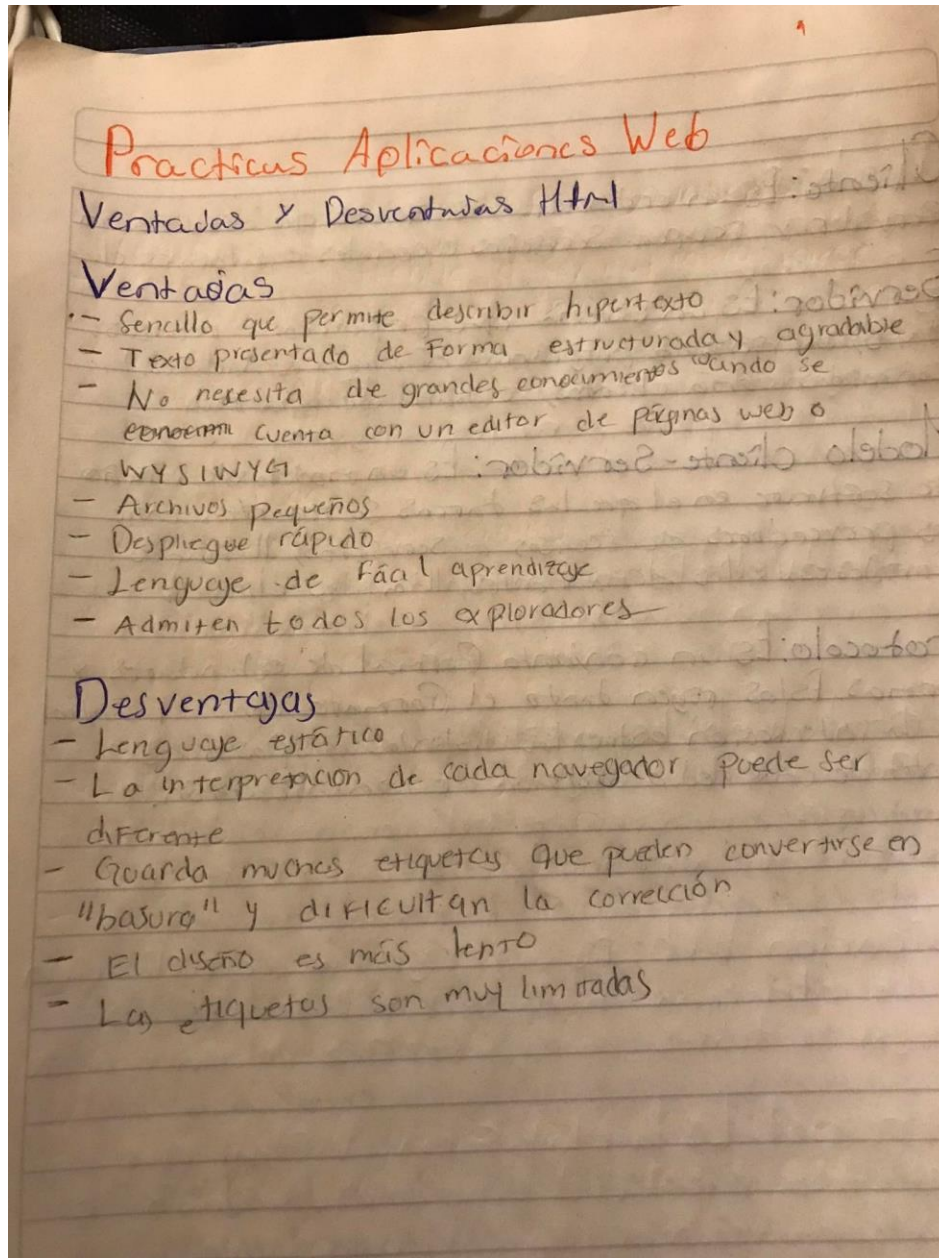 1
Practicas Aplicaciones Web
Ventajas y Desventajas Html
Ventajas
- Sencillo que permite describir hipertexto
- Texto presentado de Forma estructurada y agradable
- No necesita de grandes conocimientos cuando se
cuenta con un editor de páginas web o
WYSIWYG
- Archivos pequeños
- Despliegue rápido
- Lenguaje de Fácil aprendizaje
- Admiten todos los exploradores
Desventajas
- Lenguaje estático
- La interpretación de cada navegador puede ser
diferente
- Guarda muchas etiquetas que pueden convertirse en
"basura" y dificultan la corrección
- El diseño es más lento
- Las etiquetas son muy limitadas